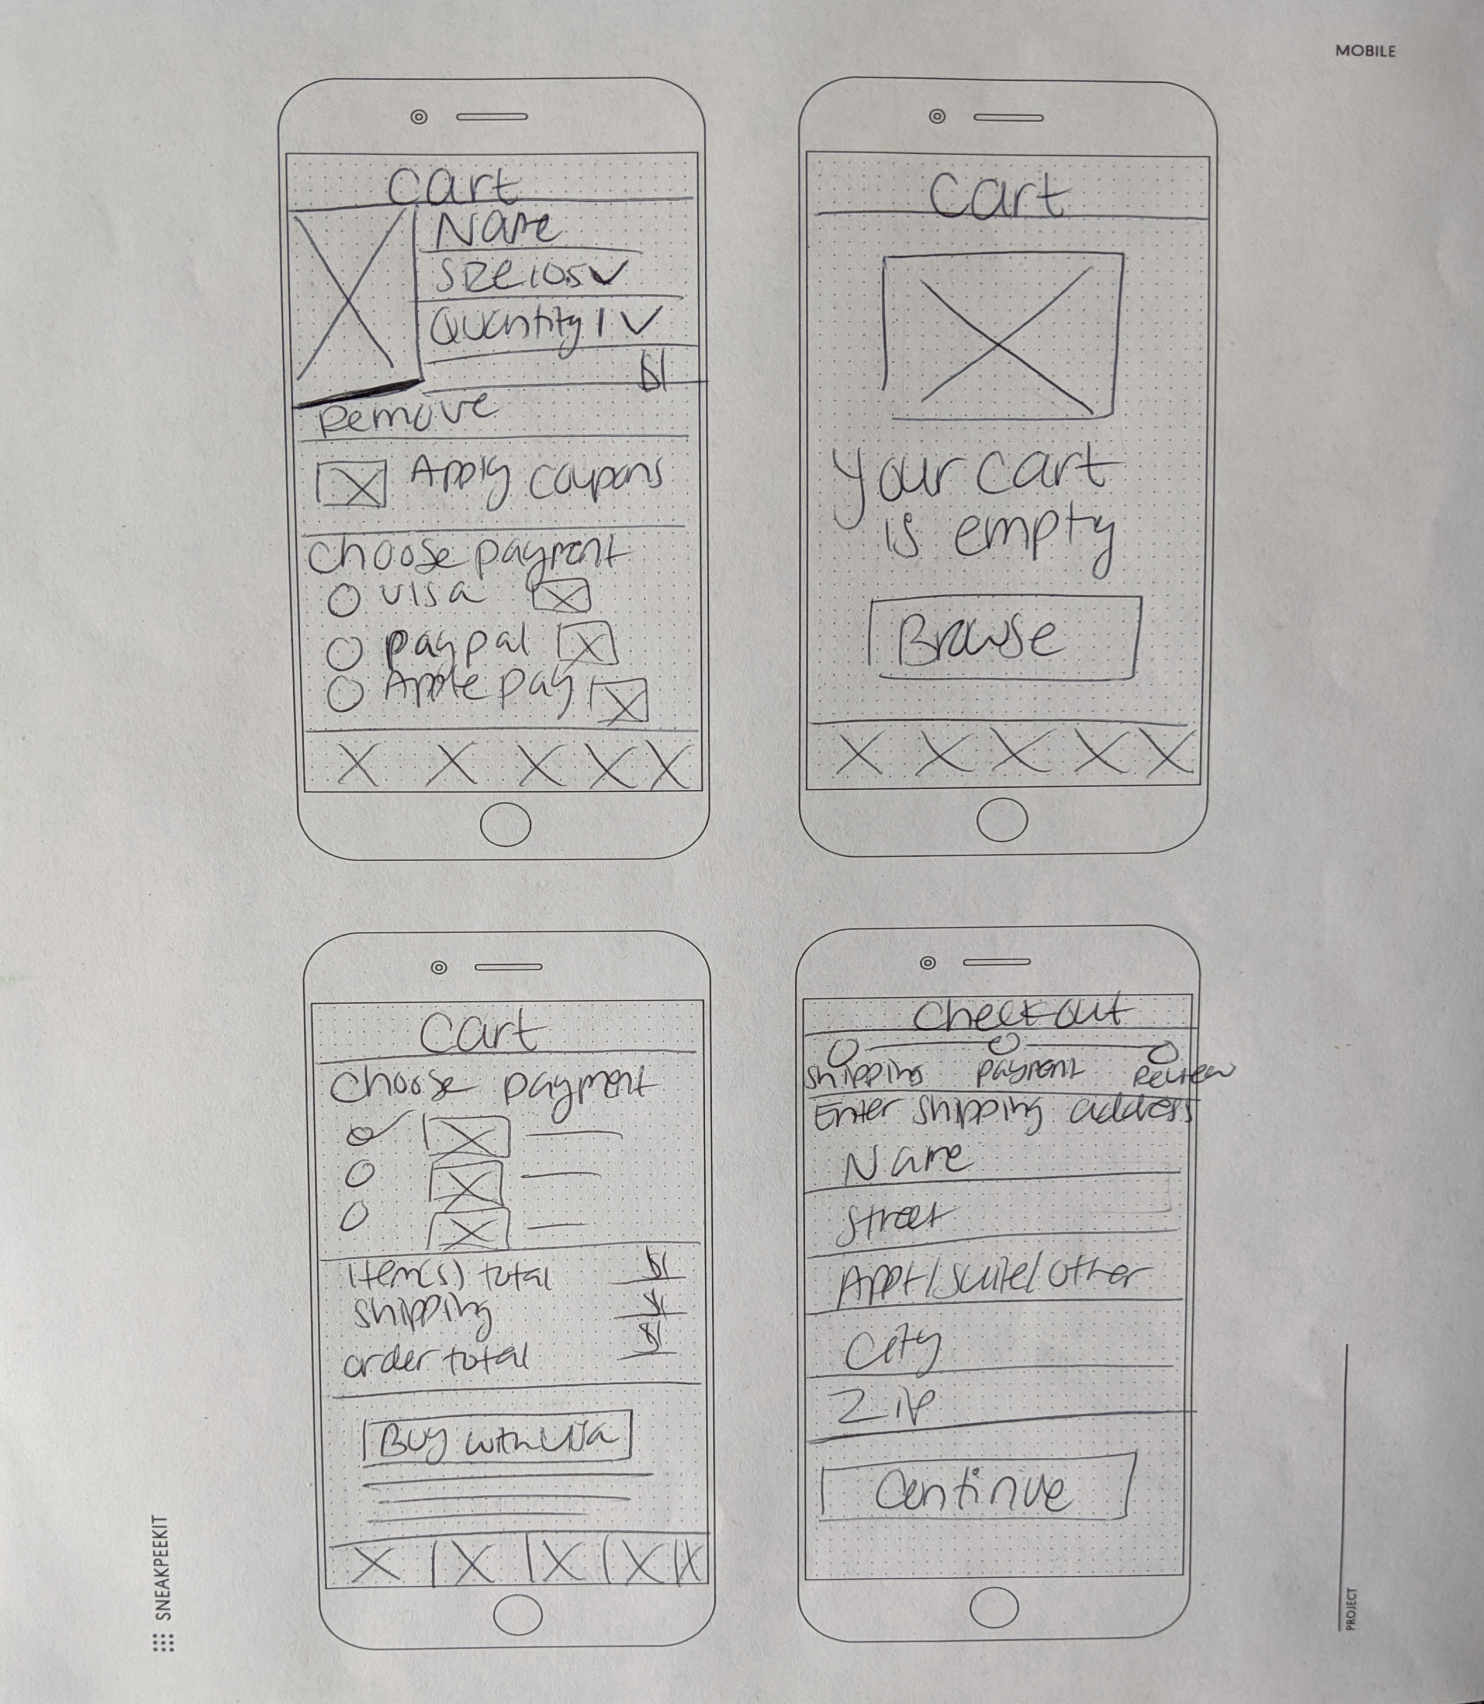 MOBILE
Cart
Name
Size 10.5
Quantity 1
$1
Remove
Apply coupons
Choose payment
visa
paypal
Apple pay
Cart
Your cart
is empty
Browse
Cart
Choose payment
Item(s) total $1
Shipping $1
order total $1
Buy with Visa
Checkout
Shipping payment Review
Enter Shipping address
Name
Street
Appt/Suite/other
City
Zip
Continue
SNEAKPEEKIT
PROJECT